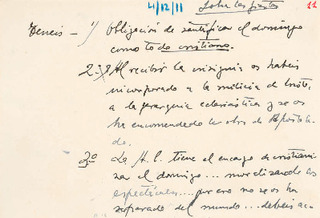 4/12/11 Sobre las fiestas 22
Teneis - 1) Obligación de santificar el domingo
como todo cristiano.
2º) Al recibir la insignia os habeis
incorporado a la milicia de Cristo,
a la jerarquia eclesiástica y se os
ha encomendado la obra de Apostola-
do.
3º La A.C. tiene el encargo de cristiani-
zar el domingo... moralizando los
espectáculos.... por eso no se os ha
separado del mundo... debeis ac-